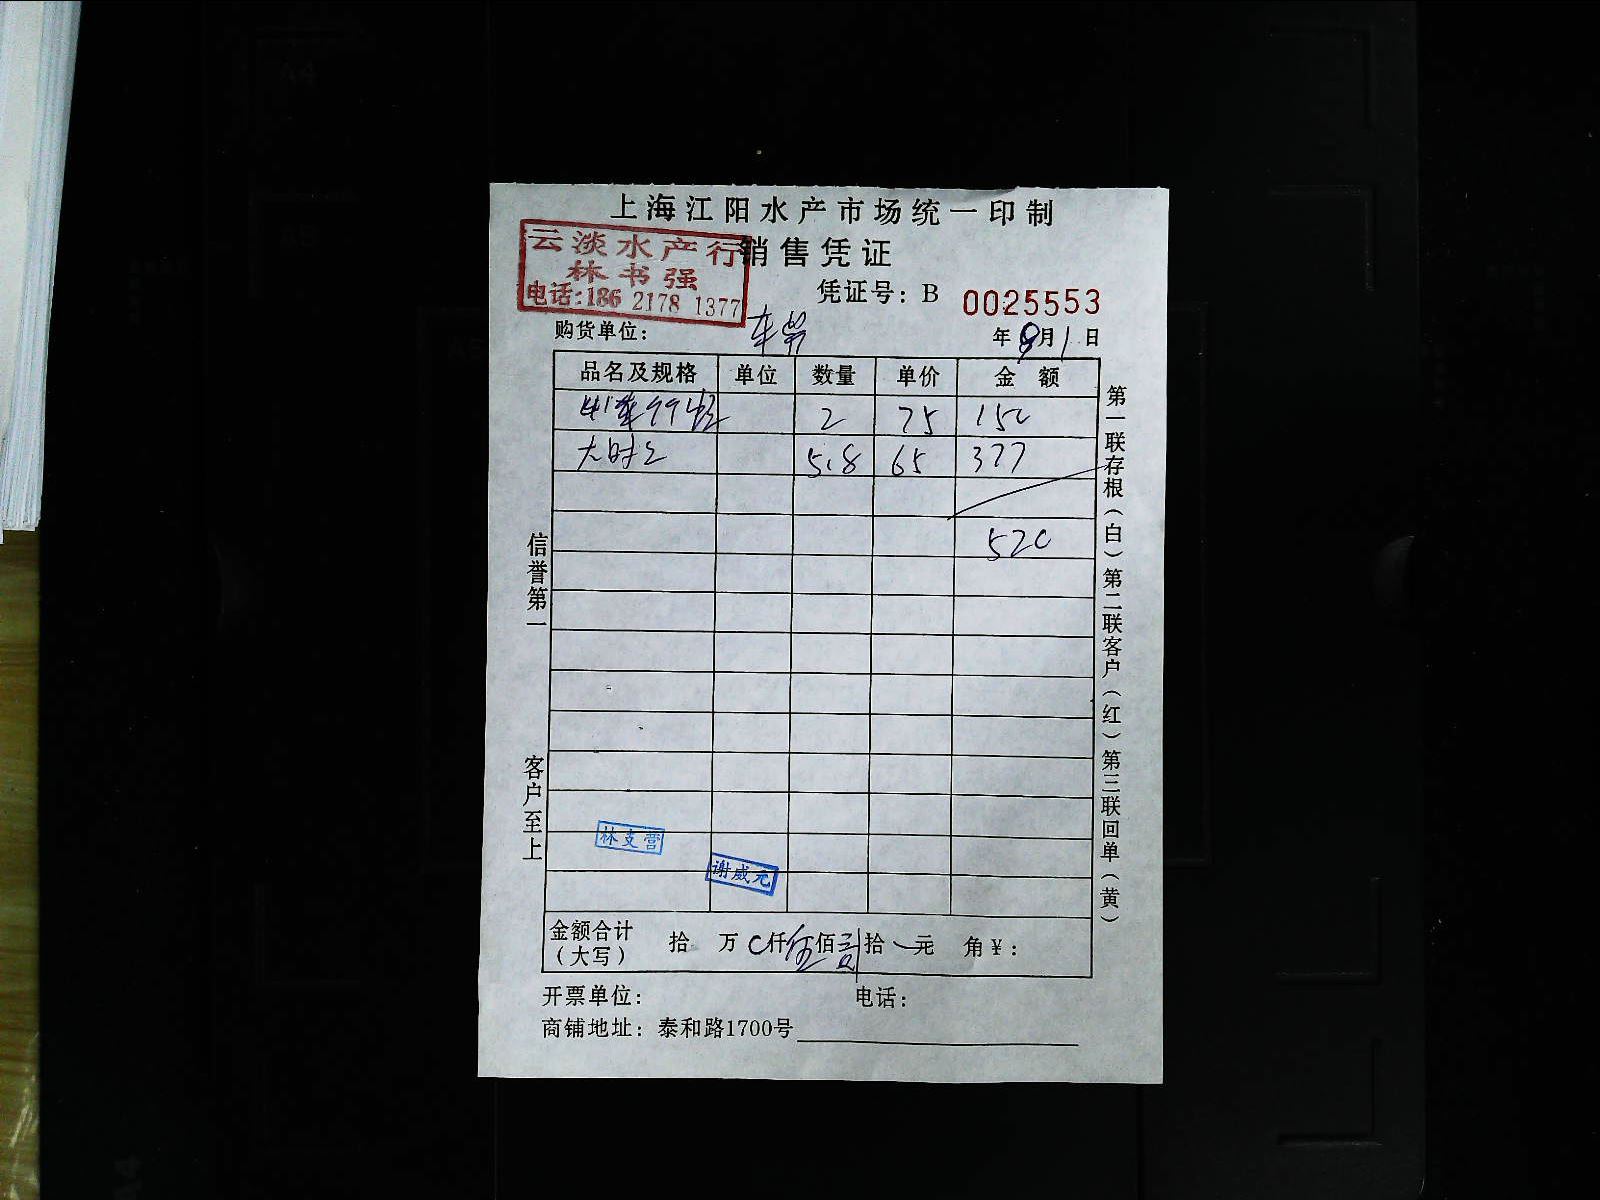 上海江阳水产市场统一印制
云淡水产行
林书强
电话:186 2178 1377
销售凭证
凭证号: B 0025553
购货单位:
年8月1日
品名及规格 单位 数量 单价 金额
2 75 150
5.8 65 377
520
信誉第一
客户至上
第一联存根(白)第二联客户(红)第三联回单(黄)
林支营
谢威元
金额合计(大写) 拾 万 0仟伍佰贰拾 元 角¥:
开票单位: 电话:
商铺地址: 泰和路1700号